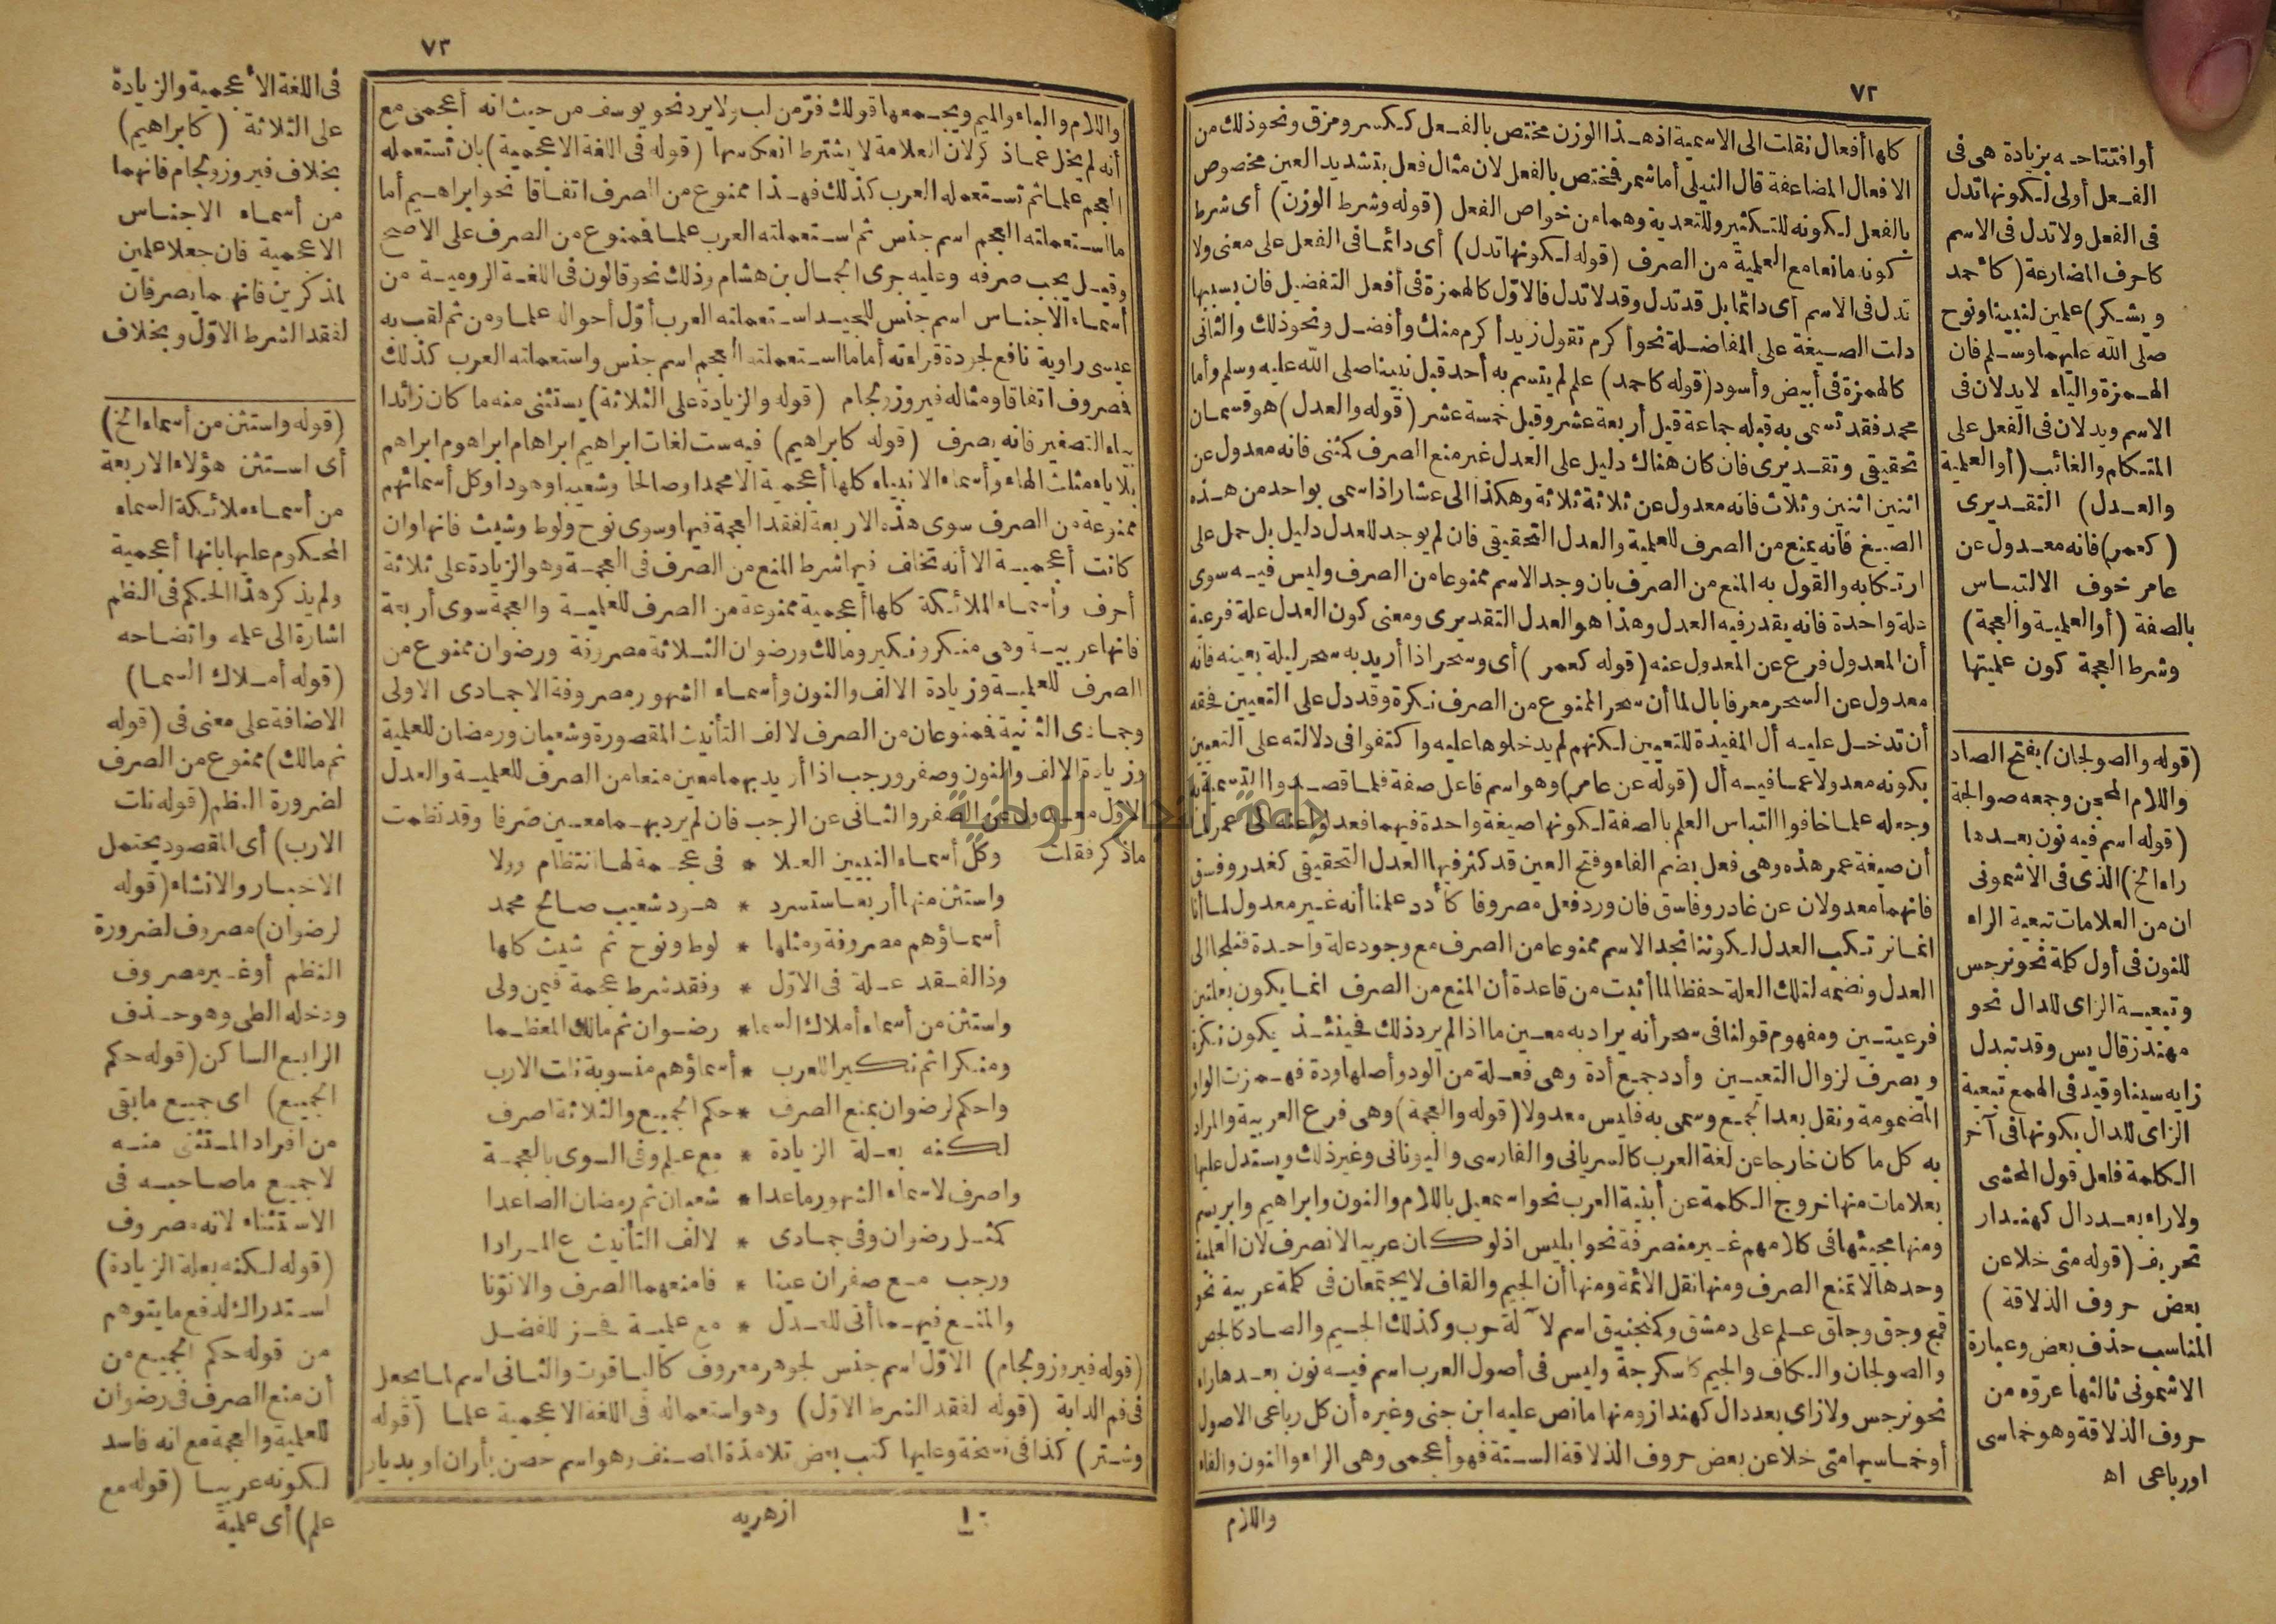 ٧٢
أو افتتاحه بزيادة هى فى
الفعل أولى لكونها تدل
فى الفعل ولا تدل فى الاسم
كاحرف المضارعة (كأحمد
ويشكر) علمين لنبينا ونوح
صلى الله عليهما وسلم فان
الهمزة والياء لا يدلان فى
الاسم ويدلان فى الفعل على
المتكلم والغائب (أو العلمية
والعدل) التقديرى
(كعمر) فانه معدول عن
عامر خوف الالتباس
بالصفة (أو العلمية والعجمة)
وشرط العجمة كون علميتها
كلها أفعال نقلت الى الاسمية اذ هذا الوزن مختص بالفعل ككسر ومزق ونحو ذلك من
الافعال المضاعفة قال النيلى أما شمر فمختص بالفعل لان مثال فعل بتشديد العين مخصوص
بالفعل لكونه للتكثير وللتعدية وهما من خواص الفعل (قوله وشرط الوزن) أى شرط
كونه مانعا مع العلمية من الصرف (قوله لكونها تدل) أى دائما فى الفعل على معنى ولا
تدل فى الاسم أى دائما بل قد تدل وقد لا تدل فالاوّل كالهمزة فى أفعل التفضيل فان بسببها
دلت الصيغة على المفاضلة نحو أكرم تقول زيد أكرم منك وأفضل ونحو ذلك والثانى
كالهمزة فى أبيض وأسود (قوله كاحمد) علم لم يتسم به أحد قبل نبينا صلى الله عليه وسلم وأما
محمد فقد تسمى به قبله جماعة قيل أربعة عشر وقيل خمسة عشر (قوله والعدل) هو قسمان
تحقيقى وتقديرى فان كان هناك دليل على العدل غير منع الصرف كمثنى فانه معدول عن
اثنين اثنين وثلاث فانه معدول عن ثلاثة ثلاثة وهكذا الى عشار اذا سمى بواحد من هذه
الصيغ فانه يمنع من الصرف للعلمية والعدل التحقيقى فان لم يوجد للعدل دليل بل حمل على
ارتكابه والقول به المنع من الصرف بان وجد الاسم ممنوعا من الصرف وليس فيه سوى
علة واحدة فانه يقدر فيه العدل وهذا هو العدل التقديرى ومعنى كون العدل علة فرعية
أن المعدول فرع عن المعدول عنه (قوله كعمر) أى وسحر اذا أريد به سحر ليلة بعينه فانه
معدول عن السحر معرفا بال لما أن سحر الممنوع من الصرف نكرة وقد دل على التعيين فحقه
أن تدخل عليه أل المفيدة للتعيين لكنهم لم يدخلوها عليه واكتفوا فى دلالته على التعيين
بكونه معدولا عما فيه أل (قوله عن عامر) وهو اسم فاعل صفة فلما قصدوا التسمية به
وجعله علما خافوا التباس العلم بالصفة لكونها صيغة واحدة فيهما فعدلوا عنه الى عمر لما
أن صيغة عمر هذه وهى فعل بضم الفاء وفتح العين قد كثر فيها العدل التحقيقى كغدر وفسق
فانهما معدولان عن غادر وفاسق فان ورد فعل مصروفا كأدد علمنا أنه غير معدول لما أنا
انما نرتكب العدل لكوننا نجد الاسم ممنوعا من الصرف مع وجود علة واحدة فنلجأ الى
العدل ونضمه لتلك العلة حفظا لما أثبت من قاعدة أن المنع من الصرف انما يكون بعلتين
فرعيتين ومفهوم قولنا فى سحر أنه يراد به معين ما اذا لم يرد ذلك فحينئذ يكون نكرة
ويصرف لزوال التعيين وأدد جمع أدة وهى فعلة من الود وأصلها ودة فهمزت الواو
المضمومة ونقل بعد الجمع وسمى به فليس معدولا (قوله والعجمة) وهى فرع العربية والمراد
به كل ما كان خارجا عن لغة العرب كالسريانى والفارسى واليونانى وغير ذلك ويستدل عليها
بعلامات منها خروج الكلمة عن أبنية العرب نحو اسمعيل باللام والنون وابراهيم وابريسم
ومنها مجيئها فى كلامهم غير منصرفة نحو ابليس اذ لو كان عربيا لانصرف لان العلمية
وحدها لا تمنع الصرف ومنها نقل الائمة ومنها أن الجيم والقاف لا يجتمعان فى كلمة عربية نحو
قمج وجق وجلق علم على دمشق وكمنجنيق اسم لآلة حرب وكذلك الجيم والصاد كالجص
والصولجان والكاف والجيم كاسكرجة وليس فى أصول العرب اسم فيه نون بعدها راء
نحو نرجس ولا زاى بعد دال كهنداز ومنها ما نص عليه ابن جنى وغيره أن كل رباعى الاصول
أو خماسيها متى خلا عن بعض حروف الذلاقة الستة فهو أعجمى وهى الراء والنون والفاء
واللام
(قوله والصولجان) بفتح الصاد
واللام المحجن وجمعه صوالجة
(قوله اسم فيه نون بعدها
راء الخ) الذى فى الاشمونى
ان من العلامات تبعية الراء
للنون فى أول كلمة نحو نرجس
وتبعية الزاى للدال نحو
مهندز قال يس وقد تبدل
زايه سينا وقيد فى الهمع تبعية
الزاى للدال بكونها فى آخر
الكلمة فلعل قول المحشى
ولا راء بعد دال كهندار
تحريف (قوله متى خلا عن
بعض حروف الذلاقة)
المناسب حذف بعض وعبارة
الاشمونى ثالثها عروه من
حروف الذلاقة وهو خماسى
او رباعى اه
٧٣
فى اللغة الاعجمية والزيادة
على الثلاثة (كابراهيم)
بخلاف فيروز ولجام فانهما
من أسماء الاجناس
الاعجمية فان جعلا علمين
لمذكرين فانهما يصرفان
لفقد الشرط الاوّل وبخلاف
واللام والباء والميم ويجمعها قولك فرّ من لب ولا يرد نحو يوسف من حيث انه أعجمى مع
أنه لم يخل عما ذكر لان العلامة لا يشترط انعكاسها (قوله فى اللغة الاعجمية) بان تستعمله
العجم علما ثم تستعمله العرب كذلك فهذا ممنوع من الصرف اتفاقا نحو ابراهيم أما
ما استعملته العجم اسم جنس ثم استعملته العرب علما فممنوع من الصرف على الاصح
وقيل يجب صرفه وعليه جرى الجمال بن هشام وذلك نحو قالون فى اللغة الرومية من
أسماء الاجناس اسم جنس للجيد استعملته العرب أوّل أحواله علما ومن ثم لقب به
عيسى راوية نافع لجودة قراءته أما ما استعملته العجم اسم جنس واستعملته العرب كذلك
فمصروف اتفاقا ومثاله فيروز ولجام (قوله والزيادة على الثلاثة) يستثنى منه ما كان زائدا
بياء التصغير فانه يصرف (قوله كابراهيم) فيه ست لغات ابراهيم ابراهام ابراهوم ابراهم
بلا ياء مثلث الهاء وأسماء الانبياء كلها أعجمية الا محمدا وصالحا وشعيبا وهودا وكل أسمائهم
ممنوعة من الصرف سوى هذه الاربعة لفقد العجمة فيها وسوى نوح ولوط وشيث فانها وان
كانت أعجمية الا أنه تخلف فيها شرط المنع من الصرف فى العجمة وهو الزيادة على ثلاثة
أحرف وأسماء الملائكة كلها أعجمية ممنوعة من الصرف للعلمية والعجمة سوى أربعة
فانها عربية وهى منكر ونكير ومالك ورضوان الثلاثة مصروفة ورضوان ممنوع من
الصرف للعلمية وزيادة الالف والنون وأسماء الشهور مصروفة الا جمادى الاولى
وجمادى الثانية فممنوعان من الصرف لالف التأنيث المقصورة وشعبان ورمضان للعلمية
وزيادة الالف والنون وصفر ورجب اذا أريد بهما معين منعا من الصرف للعلمية والعدل
الاول معدول عن الصفر والثانى عن الرجب فان لم يرد بهما معين صرفا وقد نظمت
ما ذكر فقلت وكل أسماء النبيين العلا * فى عجمة لها انتظام وولا
واستثن منها أربعا ستسرد * هود شعيب صالح محمد
أسماؤهم مصروفة ومثلها * لوط ونوح ثم شيث كلها
وذا لفقد علة فى الاوّل * وفقد شرط عجمة فيمن ولى
واستثن من أسماء أملاك السما * رضوان ثم مالك المعظما
ومنكرا ثم نكيرا للعرب * أسماؤهم منسوبة نلت الارب
واحكم لرضوان بمنع الصرف * حكم الجميع والثلاثة اصرف
لكنه بعلة الزيادة * مع علم وفى السوى بالعجمة
واصرف لاسماء الشهور ما عدا * شعبان ثم رمضان الصاعدا
كمثل رضوان وفى جمادى * لالف التأنيث ع المرادا
ورجب مع صفران عينا * فامنعهما الصرف والا نوّنا
والمنع فيهما أتى للعدل * مع علمية فحز للفضل
(قوله فيروز ولجام) الاوّل اسم جنس لجوهر معروف كالياقوت والثانى اسم لما يجعل
فى فم الدابة (قوله لفقد الشرط الاوّل) وهو استعماله فى اللغة الاعجمية علما (قوله
وشتر) كذا فى نسخة وعليها كتب بعض تلامذة المصنف وهو اسم حصن بأران او بديار
١٠ ازهريه
(قوله واستثن من أسماء الخ)
أى استثن هؤلاء الاربعة
من أسماء ملائكة السماء
المحكوم عليها بانها أعجمية
ولم يذكر هذا الحكم فى النظم
اشارة الى علمه واتضاحه
(قوله أملاك السما)
الاضافة على معنى فى (قوله
ثم مالك) ممنوع من الصرف
لضرورة النظم (قوله نلت
الارب) أى المقصود يحتمل
الاخبار والانشاء (قوله
لرضوان) مصروف لضرورة
النظم أو غير مصروف
ودخله الطى وهو حذف
الرابع الساكن (قوله حكم
الجميع) اى جميع ما بقى
من افراد المستثنى منه
لا جميع ما صاحبه فى
الاستثناء لانه مصروف
(قوله لكنه بعلة الزيادة)
استدراك لدفع ما يتوهم
من قوله حكم الجميع من
أن منع الصرف فى رضوان
للعلمية والعجمة مع انه فاسد
لكونه عربيا (قوله مع
علم) أى علمية
جامعة النجاح الوطنية